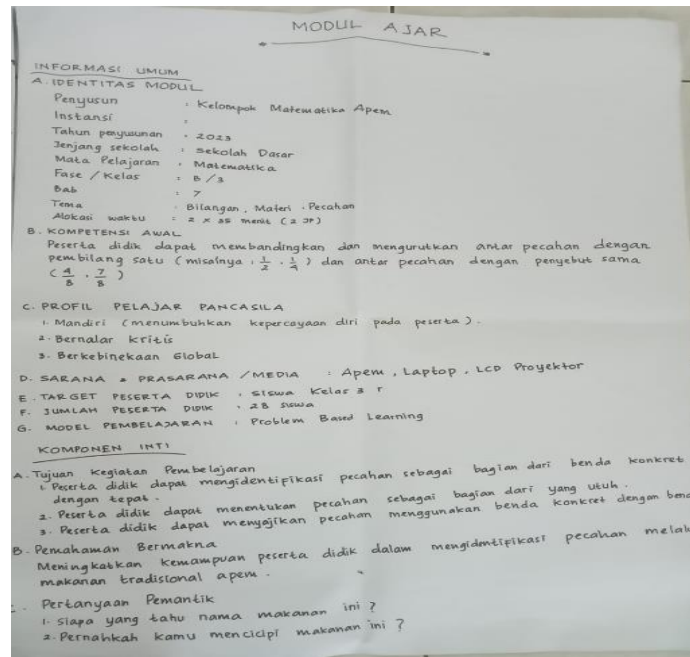 MODUL AJAR
INFORMASI UMUM
A. IDENTITAS MODUL
Penyusun : Kelompok Matematika Apem
Instansi :
Tahun penyusunan : 2023
Jenjang sekolah : Sekolah Dasar
Mata Pelajaran : Matematika
Fase / Kelas : B / 3
Bab : 7
Tema : Bilangan, Materi : Pecahan
Alokasi waktu : 2 x 35 menit (2 JP)
B. KOMPETENSI AWAL
Peserta didik dapat membandingkan dan mengurutkan antar pecahan dengan
pembilang satu (misalnya : 1/2 . 1/4) dan antar pecahan dengan penyebut sama
(4/8 . 7/8)
C. PROFIL PELAJAR PANCASILA
1. Mandiri (menumbuhkan kepercayaan diri pada peserta).
2. Bernalar Kritis
3. Berkebinekaan Global
D. SARANA & PRASARANA / MEDIA : Apem, Laptop, LCD Proyektor
E. TARGET PESERTA DIDIK : Siswa Kelas 3 r
F. JUMLAH PESERTA DIDIK : 28 siswa
G. MODEL PEMBELAJARAN : Problem Based Learning
KOMPONEN INTI
A. Tujuan Kegiatan Pembelajaran
1. Peserta didik dapat mengidentifikasi pecahan sebagai bagian dari benda konkret
dengan tepat.
2. Peserta didik dapat menentukan pecahan sebagai bagian dari yang utuh.
3. Peserta didik dapat menyajikan pecahan menggunakan benda konkret dengan ben
B. Pemahaman Bermakna
Meningkatkan kemampuan peserta didik dalam mengidentifikasi pecahan melal
makanan tradisional apem.
Pertanyaan Pemantik
1. Siapa yang tahu nama makanan ini ?
2. Pernahkah kamu mencicipi makanan ini ?